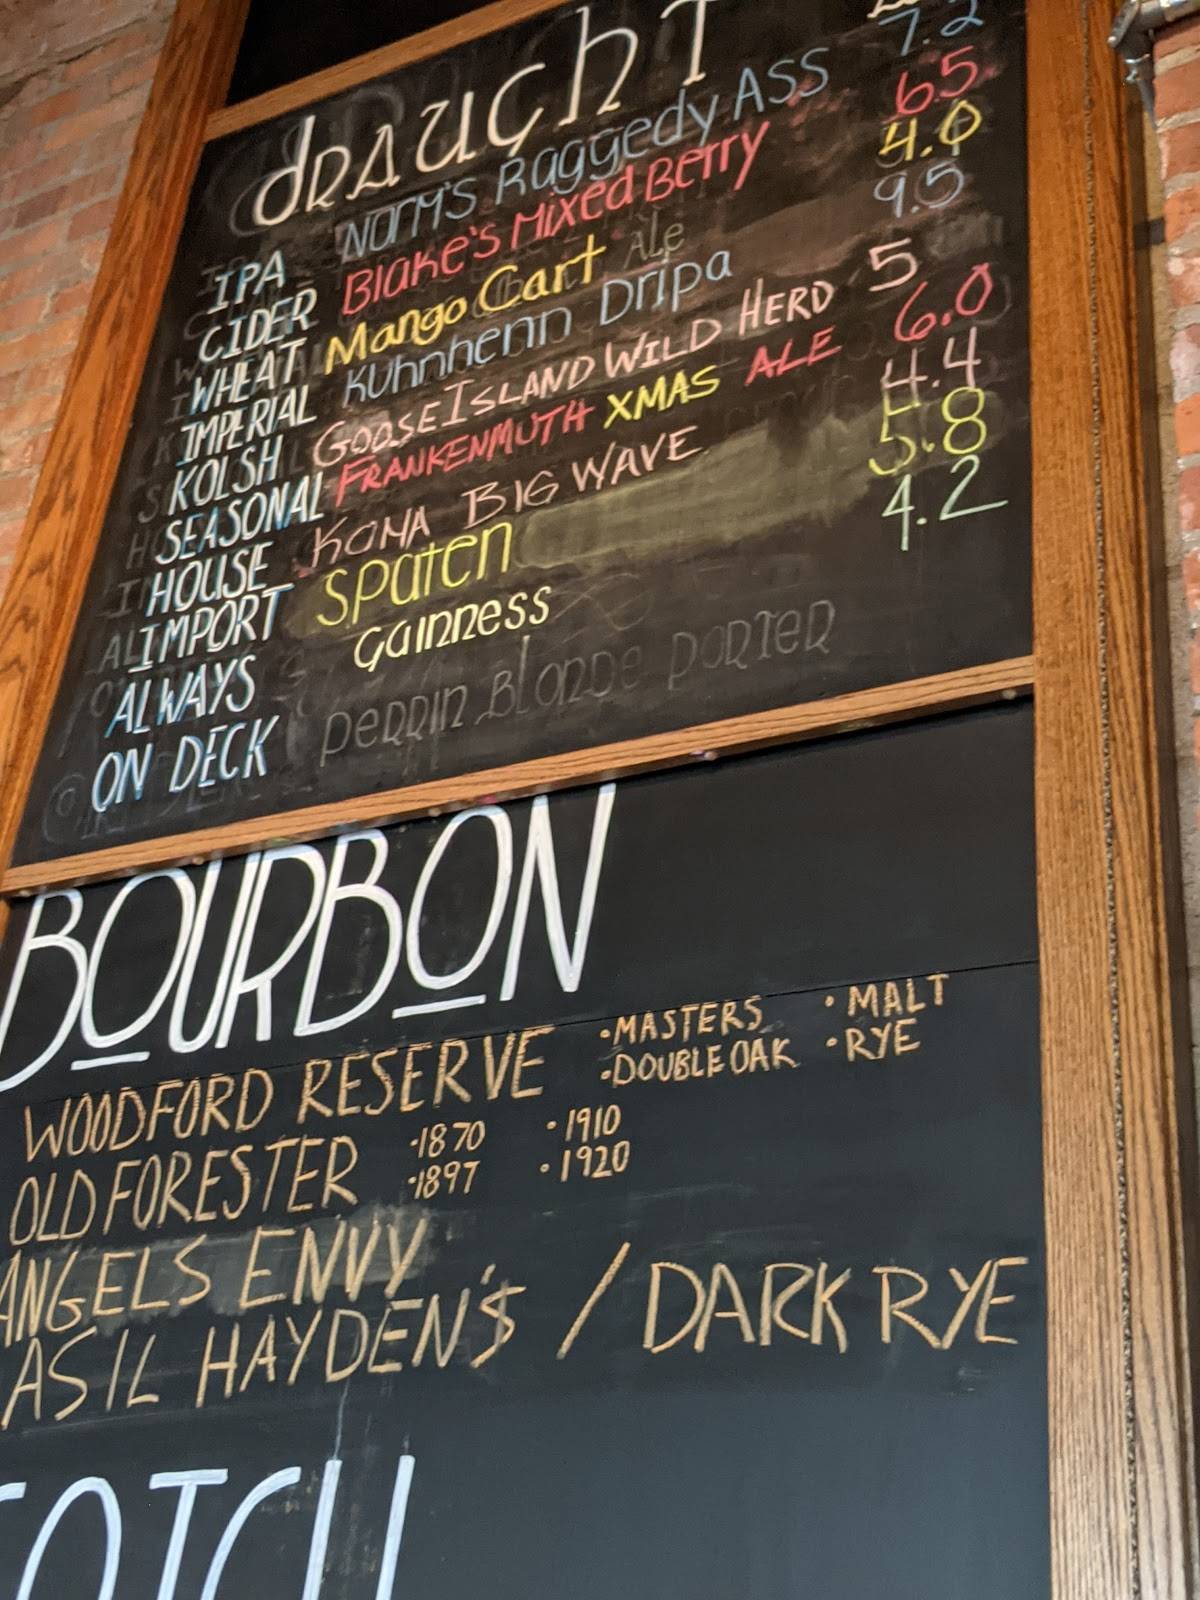 draught
IPA Norm's Raggedy ASS 7.2
CIDER Blake's Mixed Berry 6.5
WHEAT Mango Cart Ale 4.0
IMPERIAL Kuhnhenn Dripa 9.5
KOLSH GOOSE ISLAND WILD HERD 5
SEASONAL FRANKENMUTH XMAS ALE 6.0
HOUSE KONA BIG WAVE 4.4
IMPORT Spaten 5.8
ALWAYS Guinness 4.2
ON DECK Perrin Blonde Porter
BOURBON
WOODFORD RESERVE • MASTERS • MALT
• DOUBLE OAK • RYE
OLD FORESTER • 1870 • 1910
• 1897 • 1920
ANGELS ENVY
ASIL HAYDEN'S / DARK RYE
OTCH